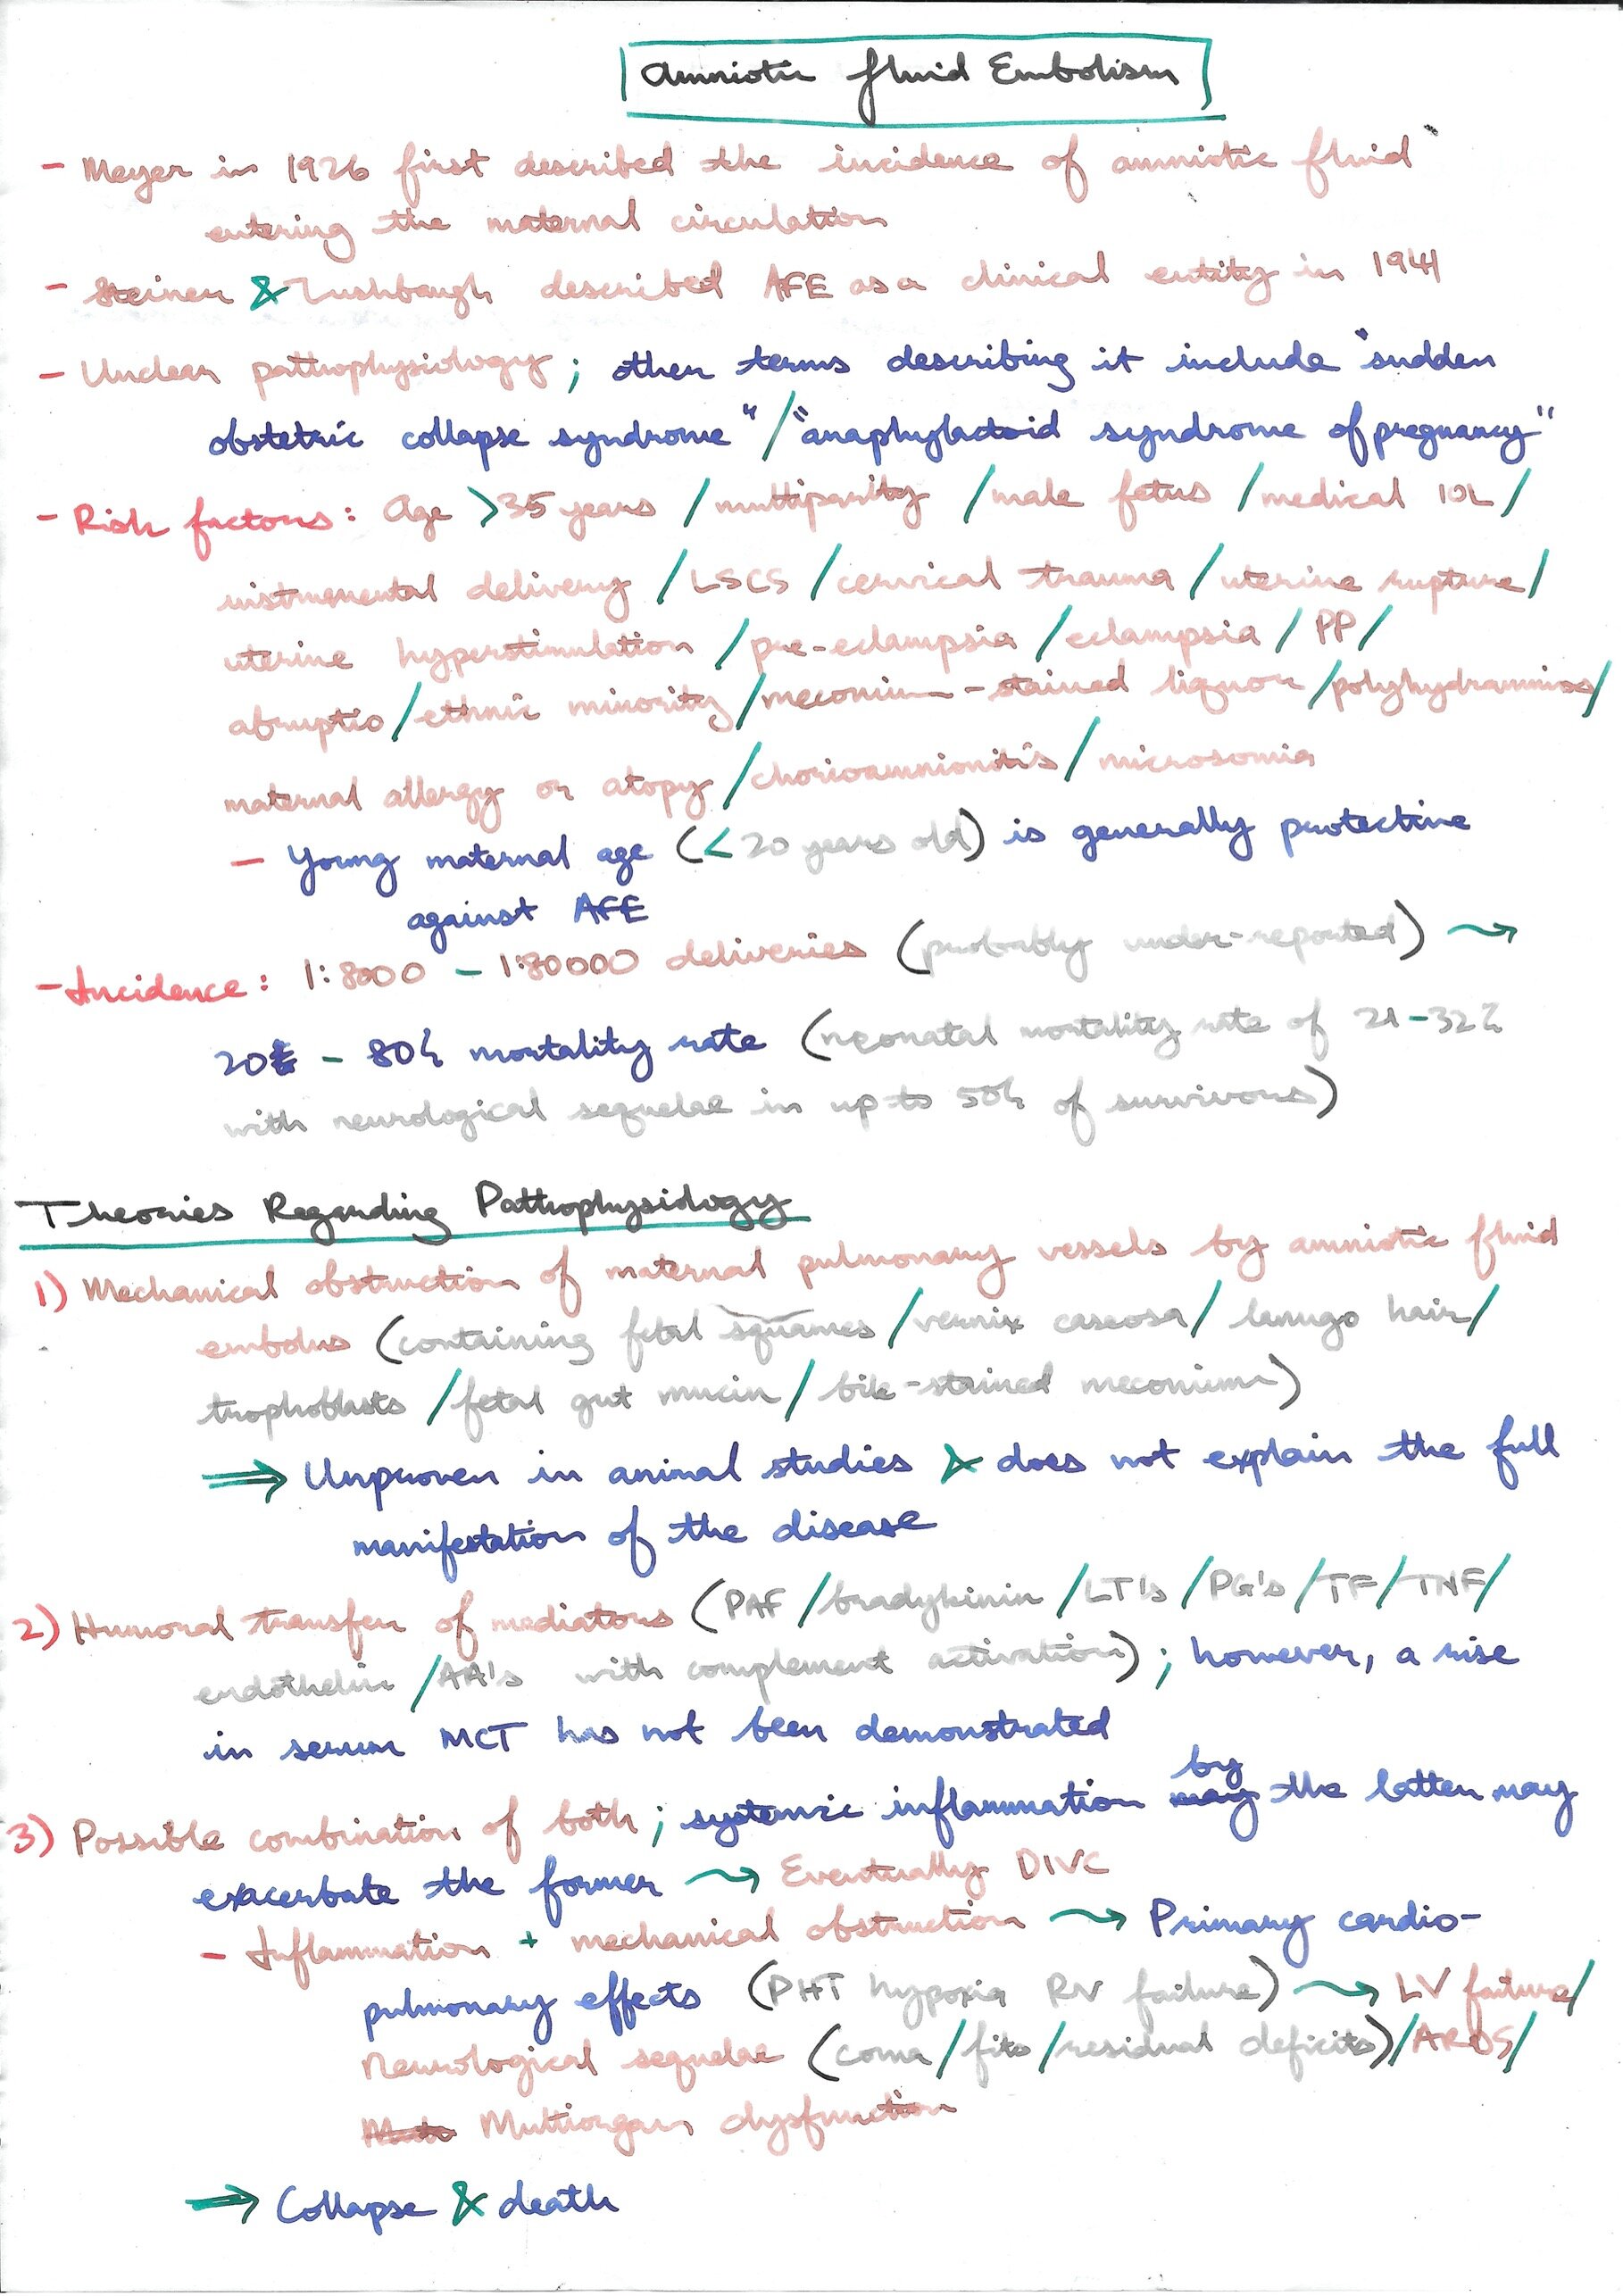 Amniotic fluid Embolism
- Meyer in 1926 first described the incidence of amniotic fluid
entering the maternal circulation
- Steiner & Lushbaugh described AFE as a clinical entity in 1941
- Unclear pathophysiology; other terms describing it include "sudden
obstetric collapse syndrome" / "anaphylactoid syndrome of pregnancy"
- Risk factors: Age >35 years / multiparity / male fetus / medical IOL /
instrumental delivery / LSCS / cervical trauma / uterine rupture /
uterine hyperstimulation / pre-eclampsia / eclampsia / PP /
abruptio / ethnic minority / meconium-stained liquor / polyhydramnios /
maternal allergy or atopy / chorioamnionitis / microsomia
- Young maternal age (<20 years old) is generally protective
against AFE
- Incidence: 1:8000 - 1:80000 deliveries (probably under-reported) →
20% - 80% mortality rate (neonatal mortality rate of 21-32%
with neurological sequelae in up to 50% of survivors)
Theories Regarding Pathophysiology
1) Mechanical obstruction of maternal pulmonary vessels by amniotic fluid
embolus (containing fetal squames / vernix caseosa / lanugo hair /
trophoblasts / fetal gut mucin / bile-stained meconium)
⇒ Unproven in animal studies & does not explain the full
manifestation of the disease
2) Humoral transfer of mediators (PAF / bradykinin / LT's / PG's / TF / TNF /
endothelin / AA's with complement activation); however, a rise
in serum MCT has not been demonstrated
3) Possible combination of both; systemic inflammation by the latter may
exacerbate the former → Eventually DIVC
- Inflammation + mechanical obstruction → Primary cardio-
pulmonary effects (PHT hypoxia RV failure) → LV failure /
Neurological sequelae (coma / fits / residual deficits) / ARDS /
Multiorgan dysfunction
⇒ Collapse & death